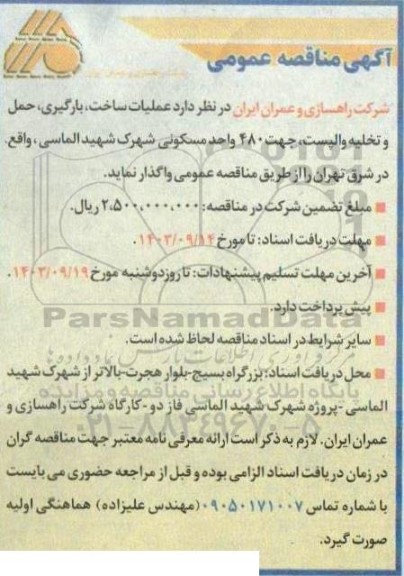 آگهی مناقصه عمومی
شرکت راهسازی و عمران ایران در نظر دارد عملیات ساخت، بارگیری، حمل
و تخلیه والپست، جهت ۴۸۰ واحد مسکونی شهرک شهید الماسی، واقع
در شرق تهران را از طریق مناقصه عمومی واگذار نماید.
■ مبلغ تضمین شرکت در مناقصه: ۲،۵۰۰،۰۰۰،۰۰۰ ریال.
■ مهلت دریافت اسناد: تا مورخ ۱۴۰۳/۰۹/۱۴.
■ آخرین مهلت تسلیم پیشنهادات: تا روز دوشنبه مورخ ۱۴۰۳/۰۹/۱۹.
■ پیش پرداخت دارد.
ParsNamadData
■ سایر شرایط در اسناد مناقصه لحاظ شده است.
■ محل دریافت اسناد: بزرگراه بسیج-بلوار هجرت-بالاتر از شهرک شهید
پایگاه اطلاع رسانی مناقصه و مزایده
الماسی -پروژه شهرک شهید الماسی فاز دو -کارگاه شرکت راهسازی و
۰۲۱-۸۸۳۴۹۶۷۰-۵
عمران ایران. لازم به ذکر است ارائه معرفی نامه معتبر جهت مناقصه گران
در زمان دریافت اسناد الزامی بوده و قبل از مراجعه حضوری می بایست
با شماره تماس ۰۹۰۵۰۱۷۱۰۰۷ (مهندس علیزاده) هماهنگی اولیه
صورت گیرد.